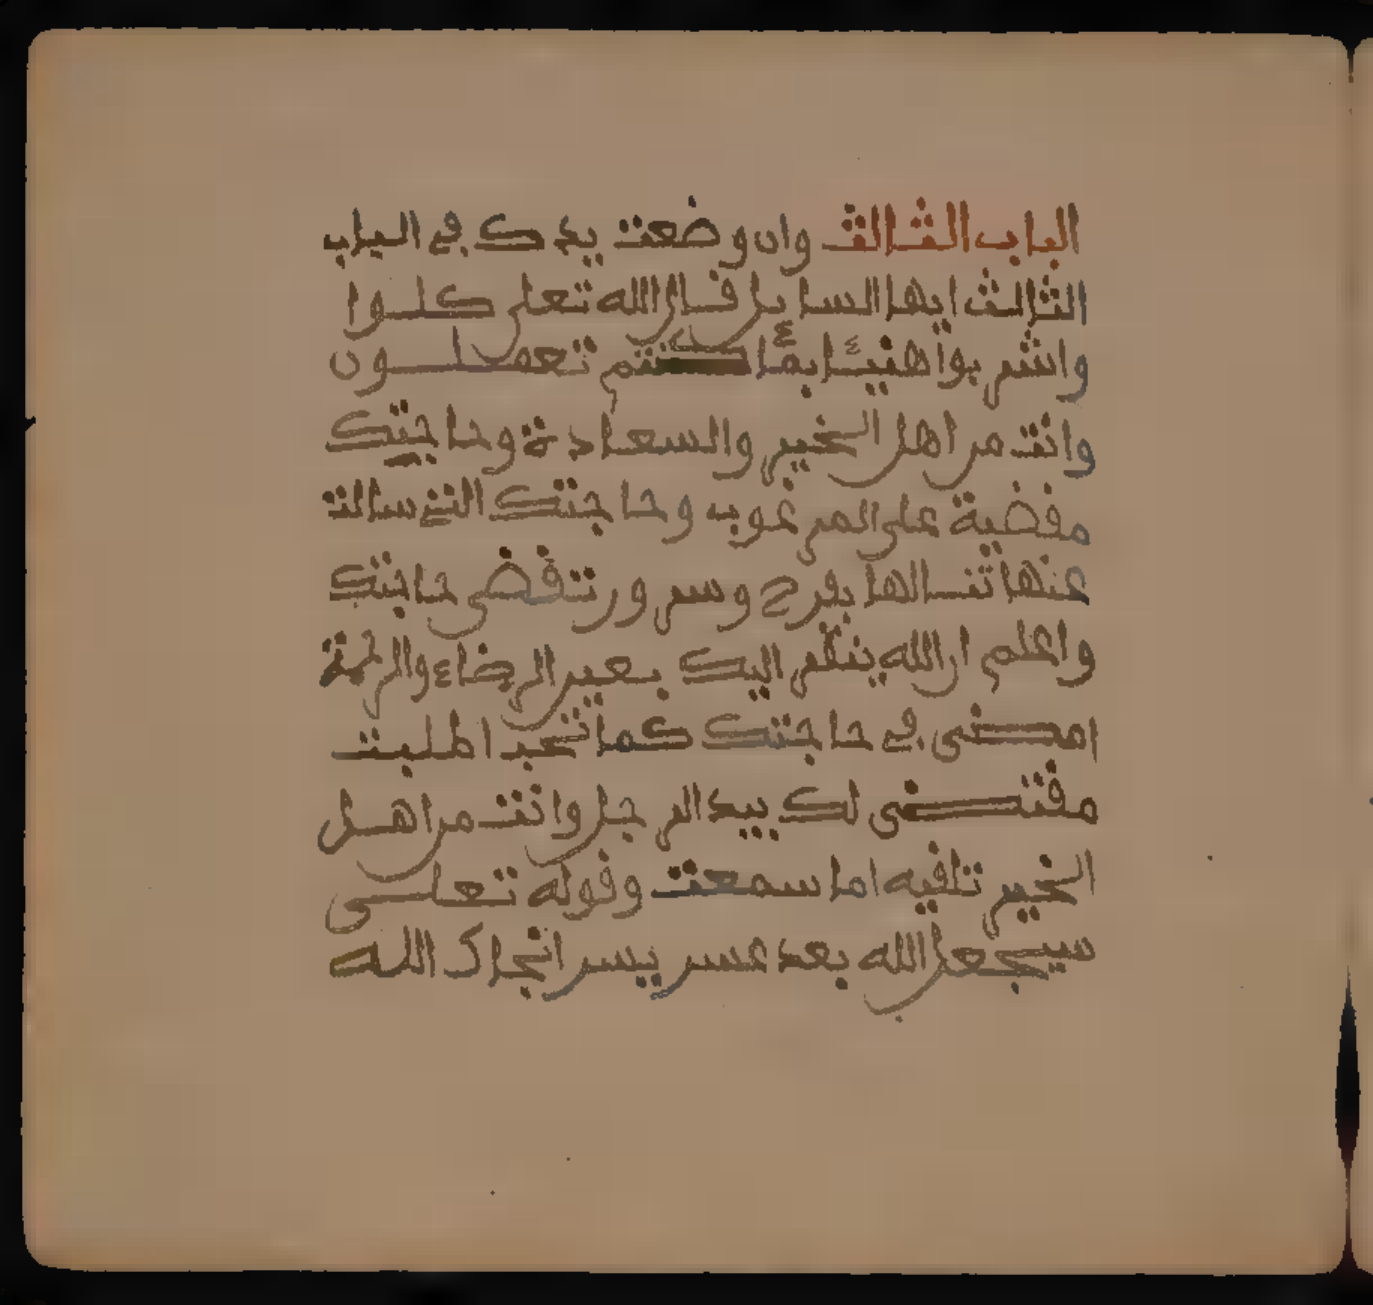 الباب الثالث وان وضعت يدك في الباب
الثالث ايها السايل فال الله تعلى كلوا
هنيئا بما كنتم تعملون
وانت من اهل الخير والسعادة وحاجتك
مفضية على المرغوب وحاجتك التي سالت
عنها تنسالها بفرح وسرور تفضى حاجتك
واعلم ان الله ينظر اليك بعين الرضاء والرحمة
امضى في حاجتك كما تحب اطلبت
مفتضى لك بيد الرجل وانت من اهل
الخير تلفيه اما سمعت وفوله تعلى
سيجعل الله بعد عسر يسرا نجاك الله